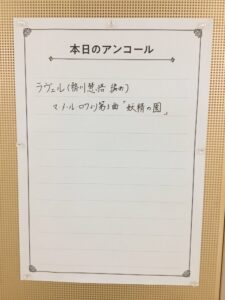 本日のアンコール
ラヴェル(
マ・メール・ロワより第5曲「妖精の園」